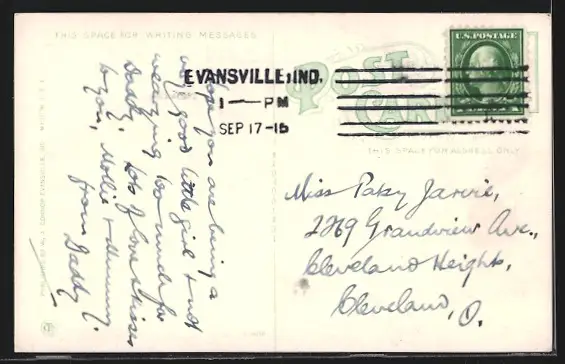 THIS SPACE FOR WRITING MESSAGES
POST
CARD
EVANSVILLE, IND.
1 — PM
SEP 17-16
U.S. POSTAGE
THIS SPACE FOR ADDRESS ONLY
Hope you are being a
very good little girl & not
worrying too much for
Daddy. Lots of love & kisses
to you, Mollie & Mummy
from Daddy.
Miss Patsy Jarvie,
2269 Grandview Ave.,
Cleveland Heights,
Cleveland, O.